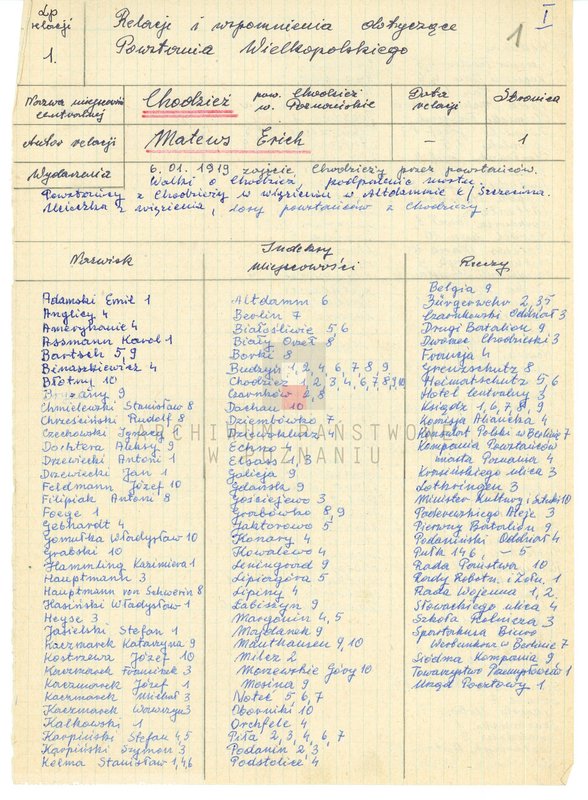 Lp
relacji
1.
Relacje i wspomnienia dotyczące
Powstania Wielkopolskiego
1
I
Nazwa miejscow.
centralnej
Chodzież
pow. Chodzież
w. Poznańskie
Data
relacji
Stronica
Autor relacji
Matews Erich
–
1
Wydarzenia
6.01.1919 zajęcie Chodzieży przez powstańców.
Walki o Chodzież, podpalenie mostu.
Powstańcy z Chodzieży w więzieniu w Altdammie k/Szczecina.
Ucieczka z więzienia, losy powstańców z Chodzieży.
Indeksy
Nazwisk
miejscowości
Rzeczy
Adamski Emil 1
Anglicy 4
Amerykanie 4
Assmann Karol 1
Bartsch 5, 9
Binaszkiewicz 4
Błotny 10
Bryzany 9
Chmielewski Stanisław 8
Chrześciński Rudolf 8
Czechowski Ignacy
Dochtera Aleksy 9
Drzewiecki Antoni 1
Drzewiecki Jan 1
Feldmann Józef 10
Filipiak Antoni 8
Foege 1
Gebhardt 4
Gomułka Władysław 10
Grabski 10
Hammling Kazimiera 1
Hauptmann 3
Hauptmann von Schwerin 8
Hasiński Władysław 1
Heyse 3
Jasielski Stefan 1
Kaczmarek Katarzyna 9
Kostrzewa Józef 10
Kaczmarek Franciszek 3
Kaczmarek Józef 1
Kaczmarek Michał 3
Kaczmarek Wawrzyn 3
Kałkowski 1
Karpiński Stefan 4, 5
Karpiński Szymon 3
Kelma Stanisław 1, 4, 6
Altdamm 6
Berlin 7
Białośliwie 5, 6
Biały Orzeł 8
Borki 8
Budzyń 1, 2, 4, 6, 7, 8, 9
Chodzież 1, 2, 3, 4, 6, 7, 8, 9, 10
Czarnków 2, 8
Dachau 10
Dziembówko 7
4
Echno 7
Elsass 1, 3
Galicja 9
Gdańsk 9
Gościejewo 3
Grabówko 8, 9
Jaktorowo 5
Konary 4
Kowalewo 4
Leningrad 9
Lipiagóra 5
Lipiny 4
Łabiszyn 9
Margonin 4, 5
Majdanek 9
Mauthausen 9, 10
Milcz 2
Morzewskie Góry 10
Mosina 9
Noteć 5, 6, 7
Oborniki 10
Orchfele 4
Piła 2, 3, 4, 6, 7
Podanin 2, 3
Podstolice 4
Belgia 9
Bürgerwehr 2, 3, 5
Czarnkowski Oddział 3
Drugi Batalion 9
Dworzec Chodzieski 3
Francja 4
Grenzschutz 8
Heimatschutz 5, 6
Hotel Centralny 3
Ksiądz 1, 6, 7, 8, 9
Komisja Aliancka 4
Konsulat Polski w Berlinie 7
Kompania Powstańców
miasta Poznania 4
Krasińskiego ulica 3
Lothringen 3
Minister Kultury i Sztuki 10
Paderewskiego Aleje 3
Pierwszy Batalion 9
Podaniński Oddział 4
Pułk 146, – 5
Rada Państwa 10
Rady Robotn. i Żołn. 1
Rada Wojenna 1, 2.
Słowackiego ulica 4
Szkoła Rolnicza 3
Biuro
Werbunkowe w Berlinie 7
Siódma Kompania 9
Towarzystwo Przemysłowców 1
Urząd Pocztowy 1
ARCHIWUM PAŃSTWOWE
W POZNANIU